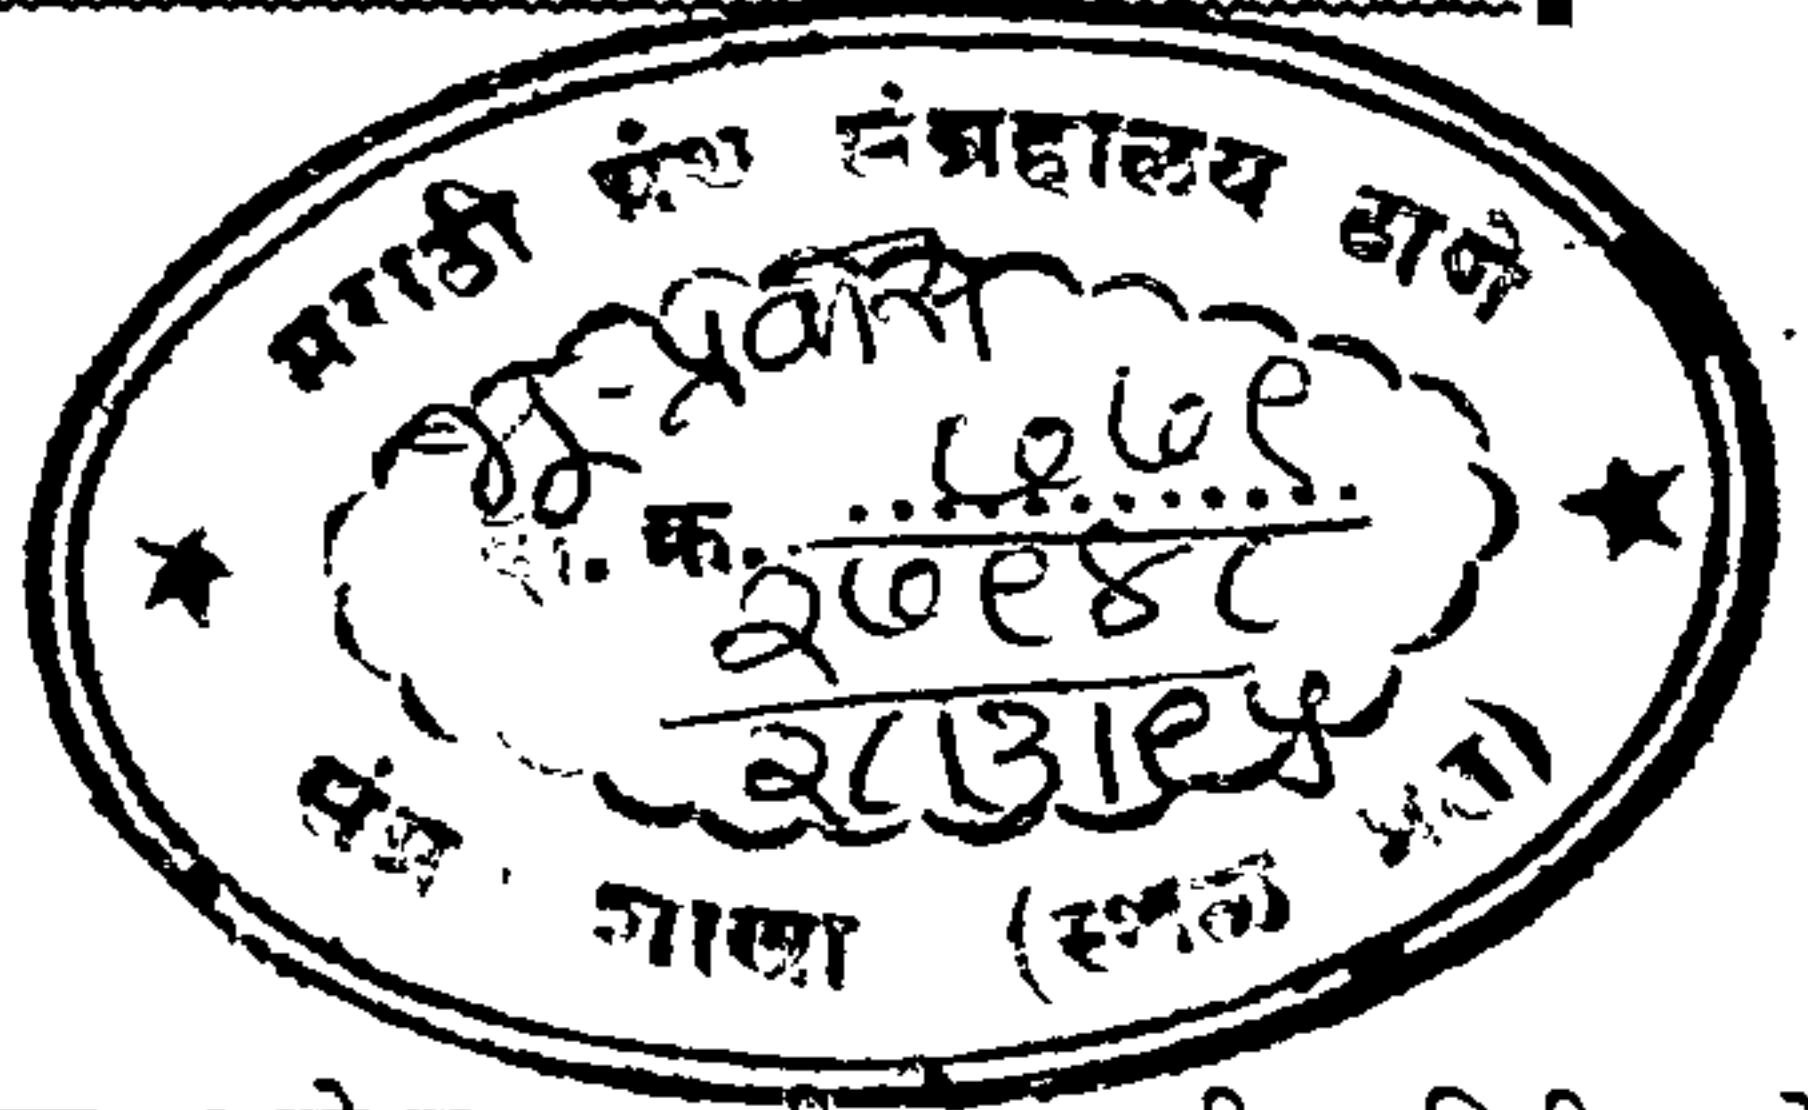 मराठी ग्रंथ संग्रहालय ठाणे
प्रवास
७७९
क्र.
२७९४८
२८।३।९५
शाखा (स्थळ प्रत)